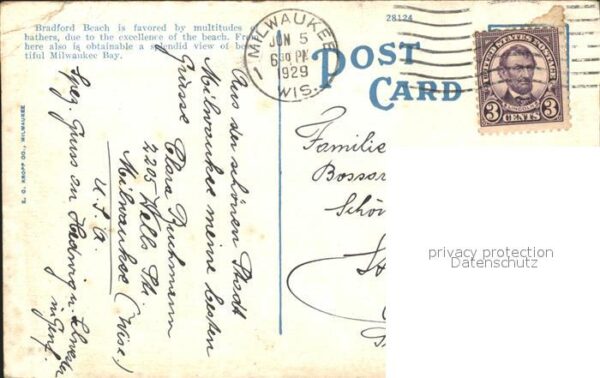 Bradford Beach is favored by multitudes
bathers, due to the excellence of the beach. Fro
here also is obtainable a splendid view of be
tiful Milwaukee Bay.
28124
MILWAUKEE
JUN 5
6 30 PM
1929
WIS.
POST
CARD
UNITED STATES POSTAGE
LINCOLN
3 CENTS 3
E. C. KROPP CO., MILWAUKEE
Aus der schönen Stadt
Milwaukee meine besten
Grüsse
Clara Buchmann
2205 Wells Str.
Milwaukee (Wisc.)
U.S.A.
Spez. Gruss an Hedwig u.
in Genf.
Familie
Bossar
Schön
privacy protection
Datenschutz